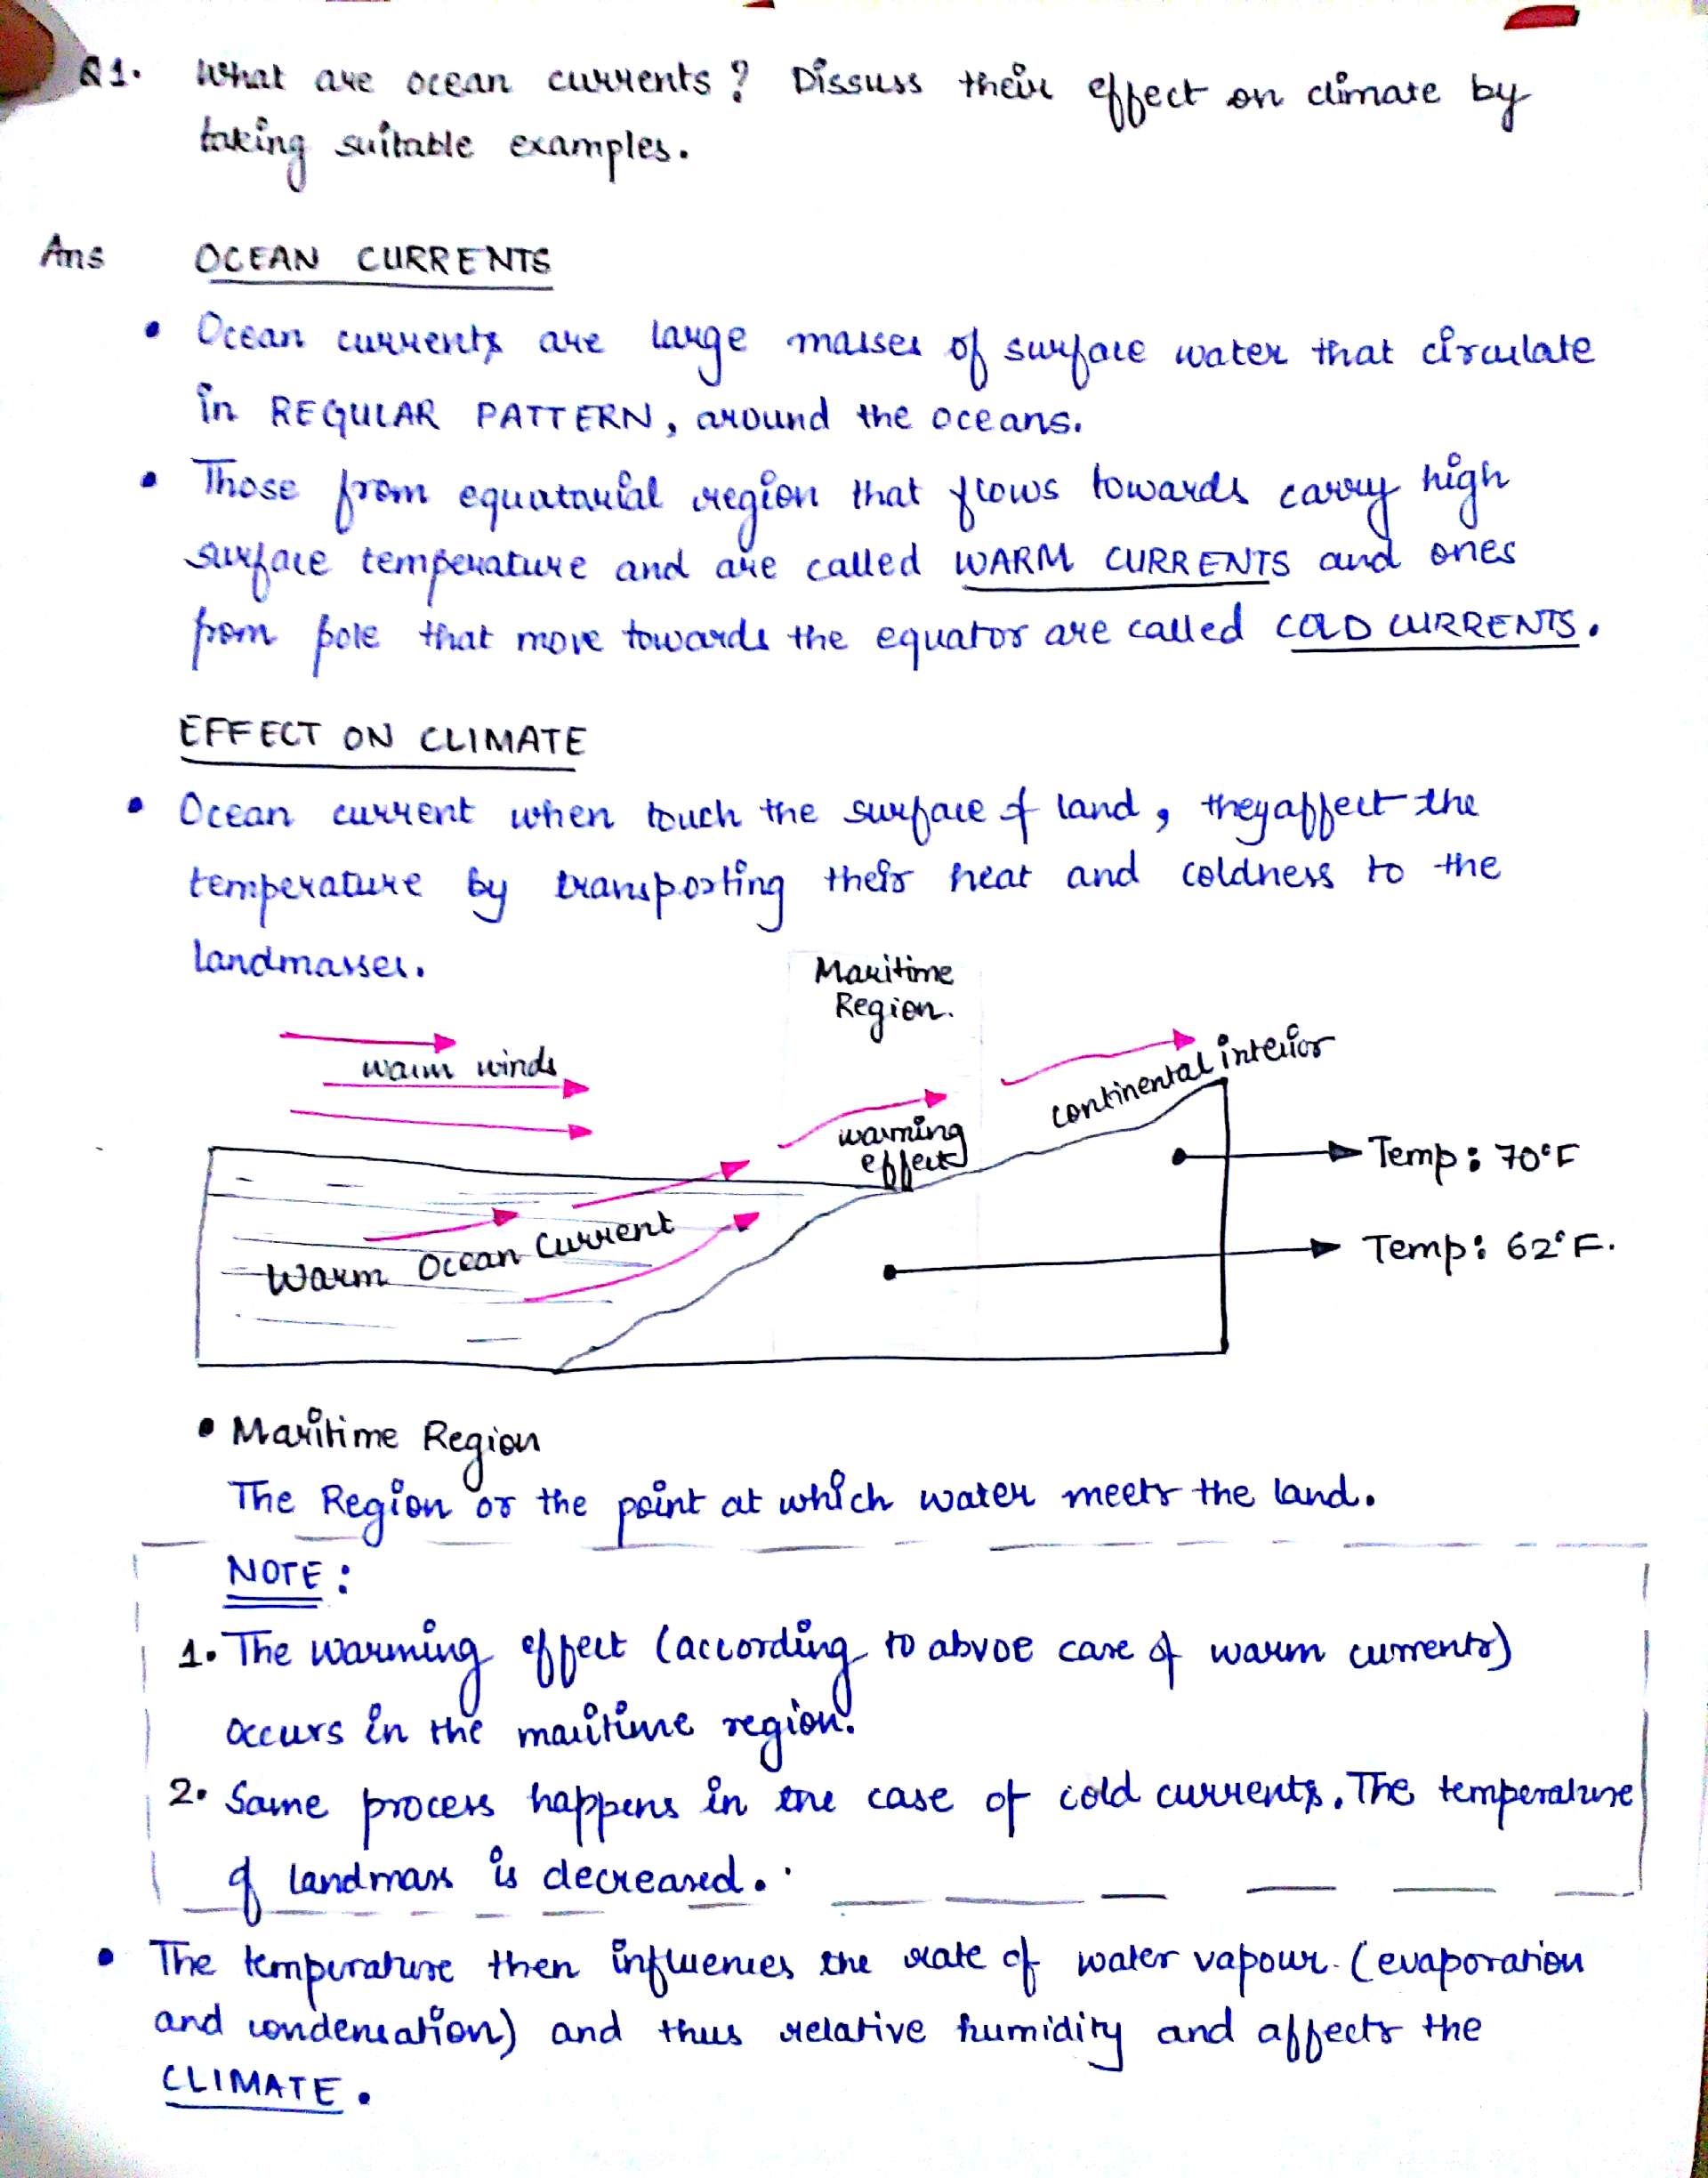 Q1. What are ocean currents? Dissuss their effect on climate by
taking suitable examples.
Ans OCEAN CURRENTS
• Ocean currents are large masses of surface water that circulate
in REGULAR PATTERN, around the oceans.
• Those from equatarial region that flows towards carry high
surface temperature and are called WARM CURRENTS and ones
from pole that move towards the equator are called COLD CURRENTS.
EFFECT ON CLIMATE
• Ocean current when touch the surface of land, they affect the
temperature by transporting their heat and coldness to the
landmasses.
Maritime
Region.
warm winds
continental interior
warming
effect
Temp: 70°F
Warm Ocean Current
Temp: 62°F.
• Maritime Region
The Region or the point at which water meets the land.
NOTE:
1. The warming effect (according to abvoe case of warm currents)
occurs in the maritime region.
2. Same process happens in the case of cold currents. The temperature
of landmass is decreased.
• The temperature then influences the rate of water vapour (evaporation
and condensation) and thus relative humidity and affects the
CLIMATE.